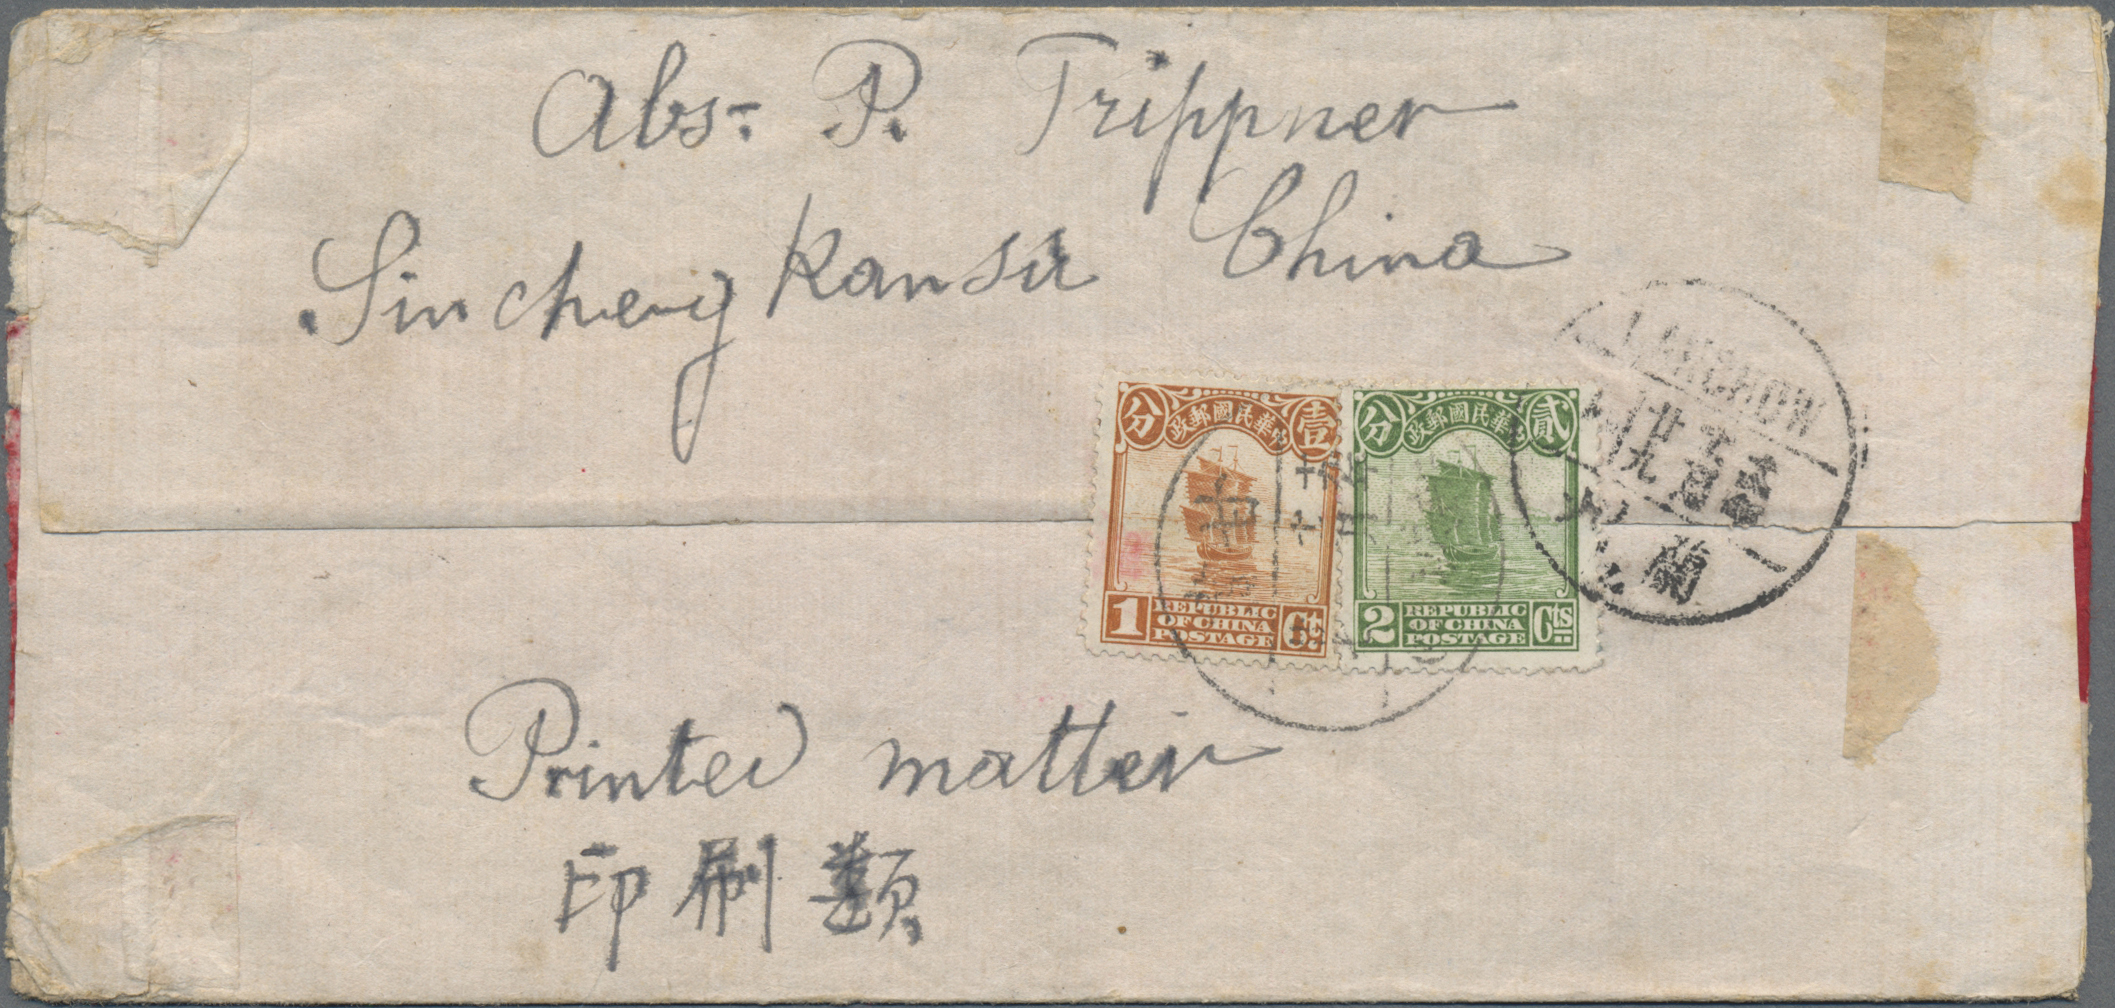 Abs. P. Trippner
Sincheng Kansu China
分 政郵國民華中 壹
1 REPUBLIC OF CHINA POSTAGE Ct.
分 政郵國民華中 貳
2 REPUBLIC OF CHINA POSTAGE Cts
LANCHOW
蘭
Printed matter
印刷類